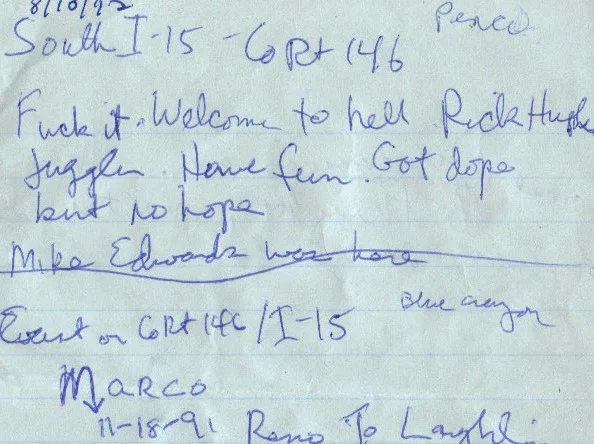 8/10/92
Pencil
South I-15 - Co Rt 146
Fuck it. Welcome to hell. Rick Hughes
Juggler. Have fun. Got dope
but no hope
Mike Edwards was here
Blue crayon
East on Co Rt 146/I-15
Marco
11-18-91 Reno To Laughlin